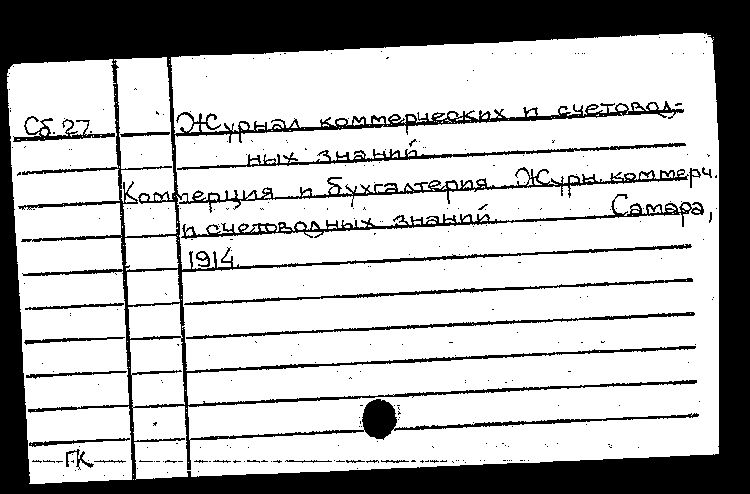 Сб. 27. Журнал коммерческих и счетовод-
ных знаний.
Коммерция и бухгалтерия. Журн. коммерч.
и счетоводных знаний. Самара,
1914.
ГК